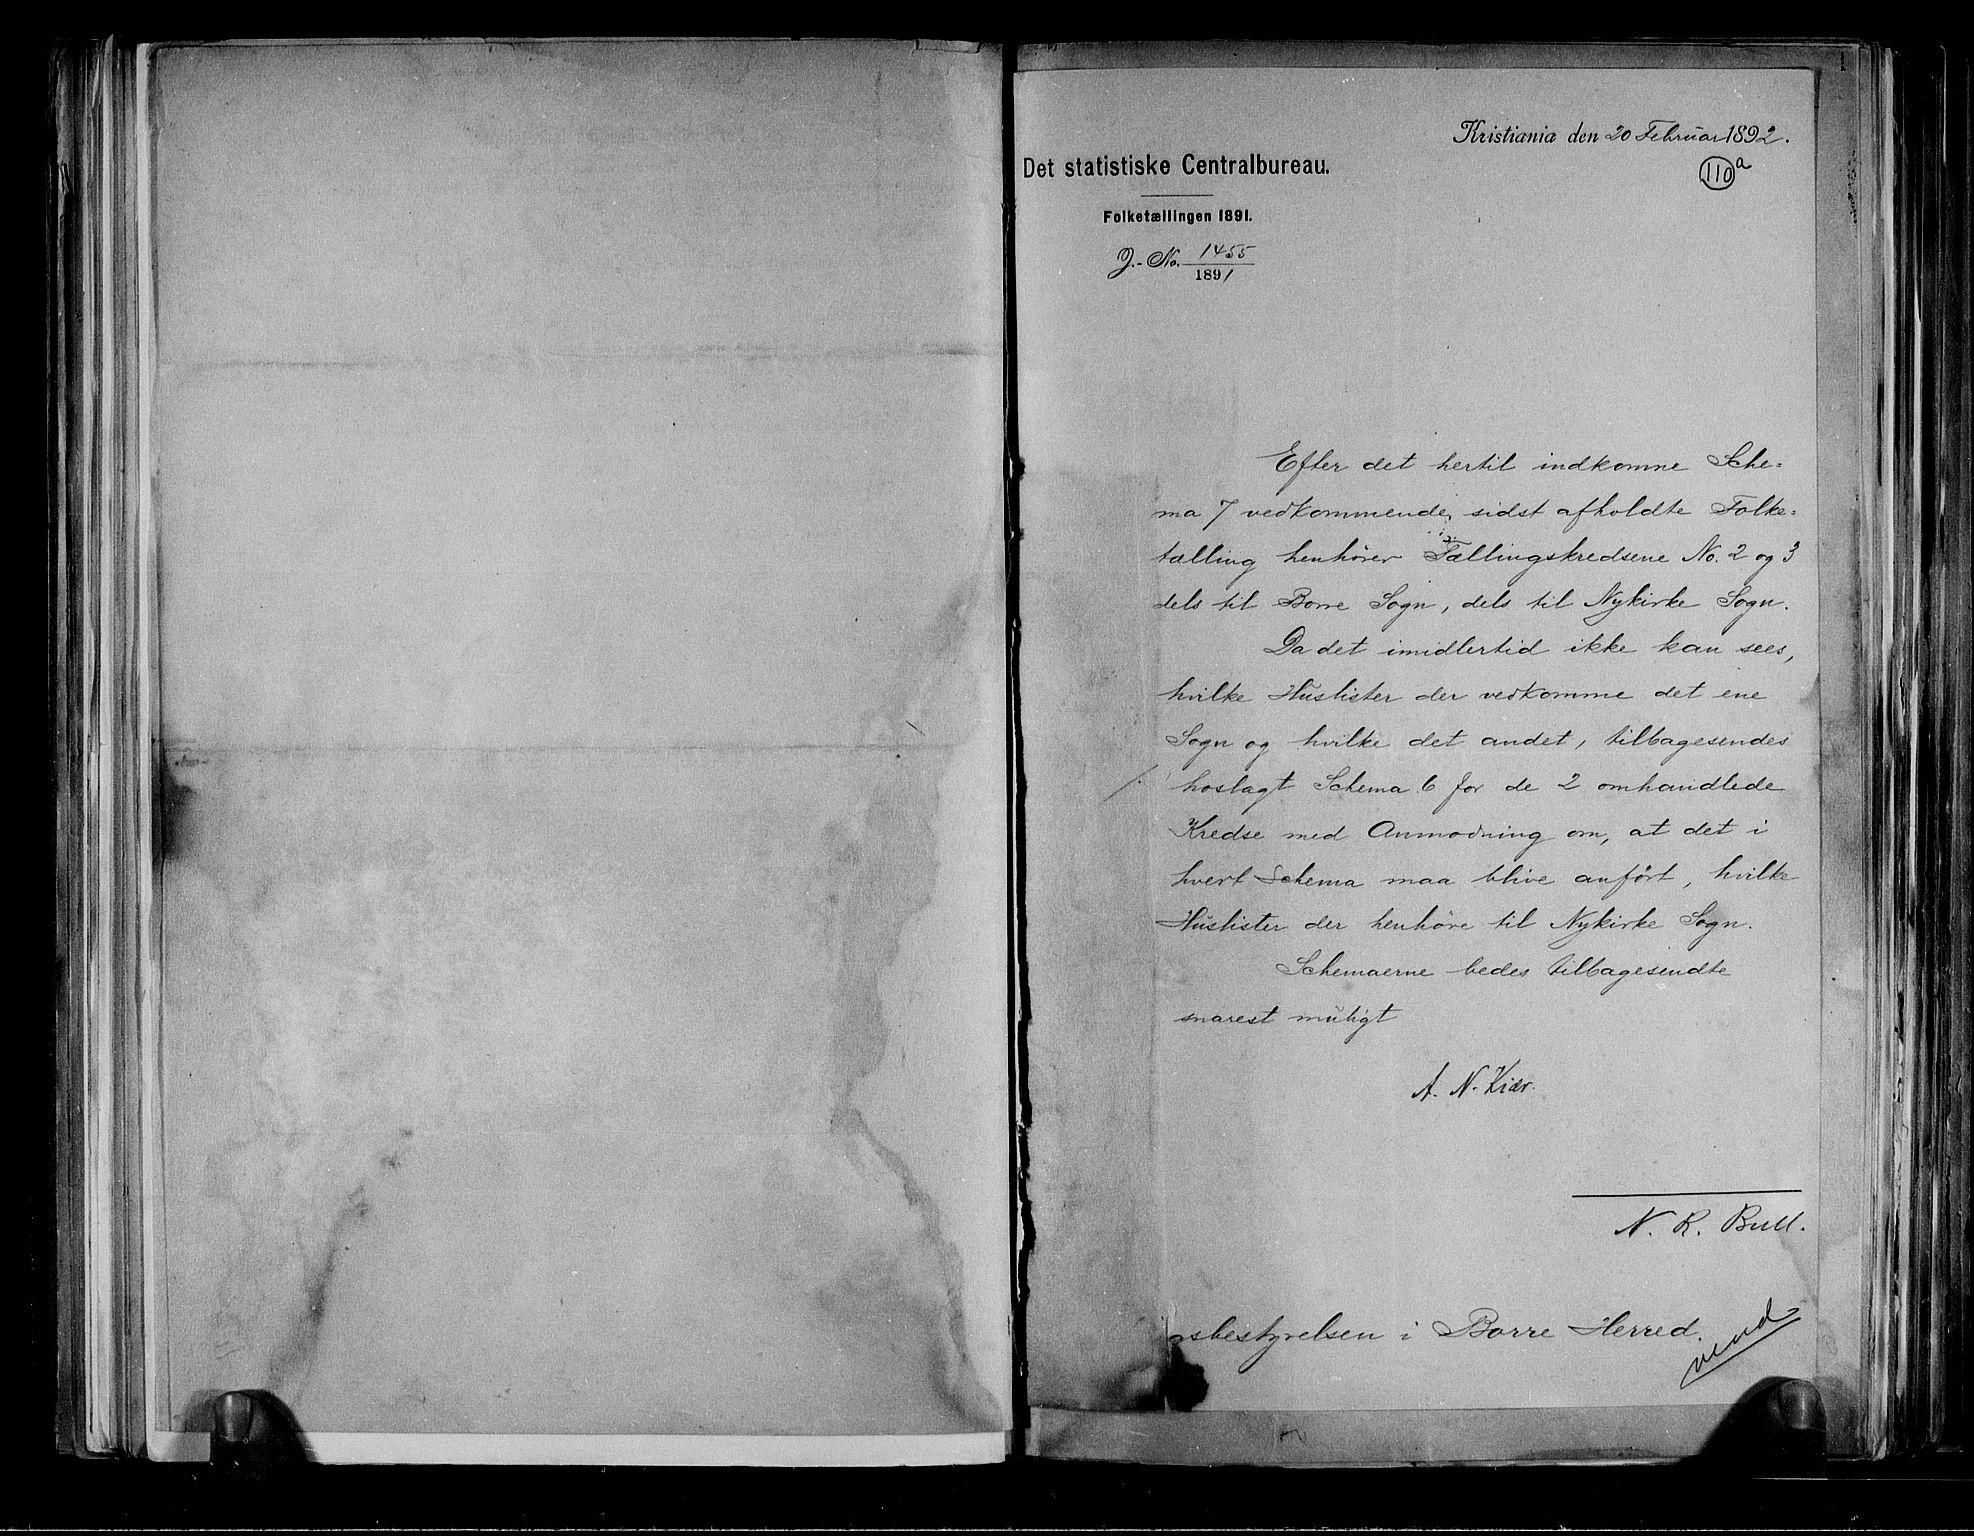 Kristiania den 20 Februar 1892.
110 a
Det statistiske Centralbureau.
Folketællingen 1891.
J.-No. 1455
1891
Efter det hertil indkomne Sche=
ma 7 vedkommende sidst afholdte Folke=
tælling henhører Tællingskredsene No. 2 og 3
dels til Borre Sogn, dels til Nykirke Sogn.
Da det imidlertid ikke kan sees,
hvilke Huslister der vedkomme det ene
Sogn og hvilke det andet, tilbagesendes
hoslagt Schema 6 for de 2 omhandlede
Kredse med Anmodning om, at det i
hvert Schema maa blive anført, hvilke
Huslister der henhøre til Nykirke Sogn.
Schemaerne bedes tilbagesendte
snarest muligt
A. N. Kiær.
N. R. Bull.
gsbestyrelsen i Borre Herred.
vend